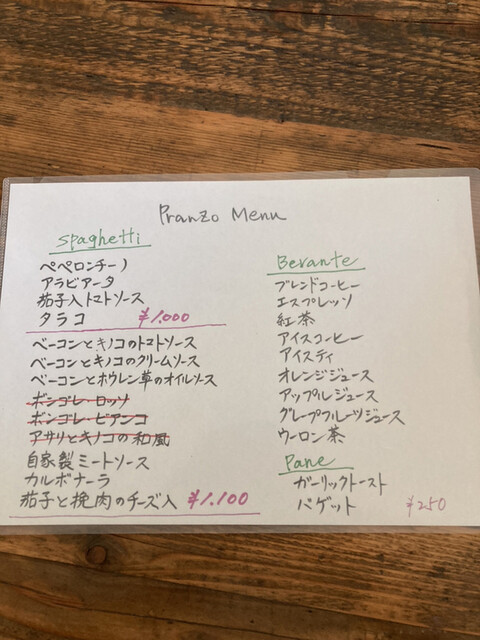 Pranzo Menu
Spaghetti
ペペロンチーノ
アラビアータ
茄子入トマトソース
タラコ ¥1.000
ベーコンとキノコのトマトソース
ベーコンとキノコのクリームソース
ベーコンとホウレン草のオイルソース
ボンゴレ・ロッソ
ボンゴレ・ビアンコ
アサリとキノコの和風
自家製ミートソース
カルボナーラ
茄子と挽肉のチーズ入 ¥1.100
Bevante
ブレンドコーヒー
エスプレッソ
紅茶
アイスコーヒー
アイスティ
オレンジジュース
アップルジュース
グレープフルーツジュース
ウーロン茶
Pane
ガーリックトースト
バゲット ¥250